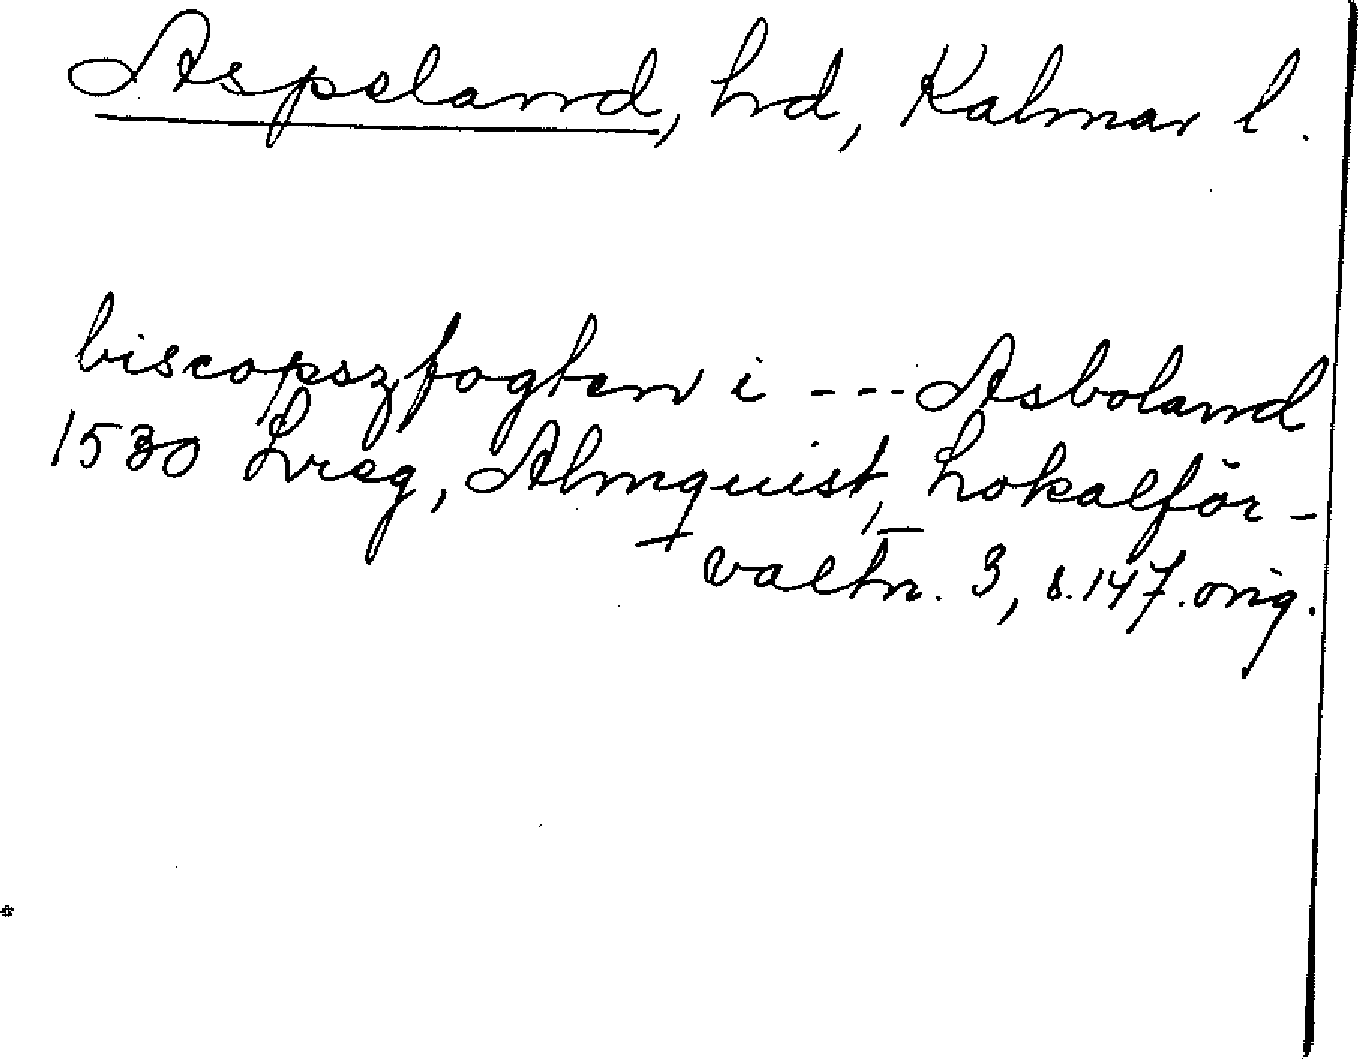 Aspeland, hd, Kalmar l.
biscopszfogten i --- Asboland
1530 Lvreg, Almquist, Lokalför-
valtn. 3, s. 147. orig.